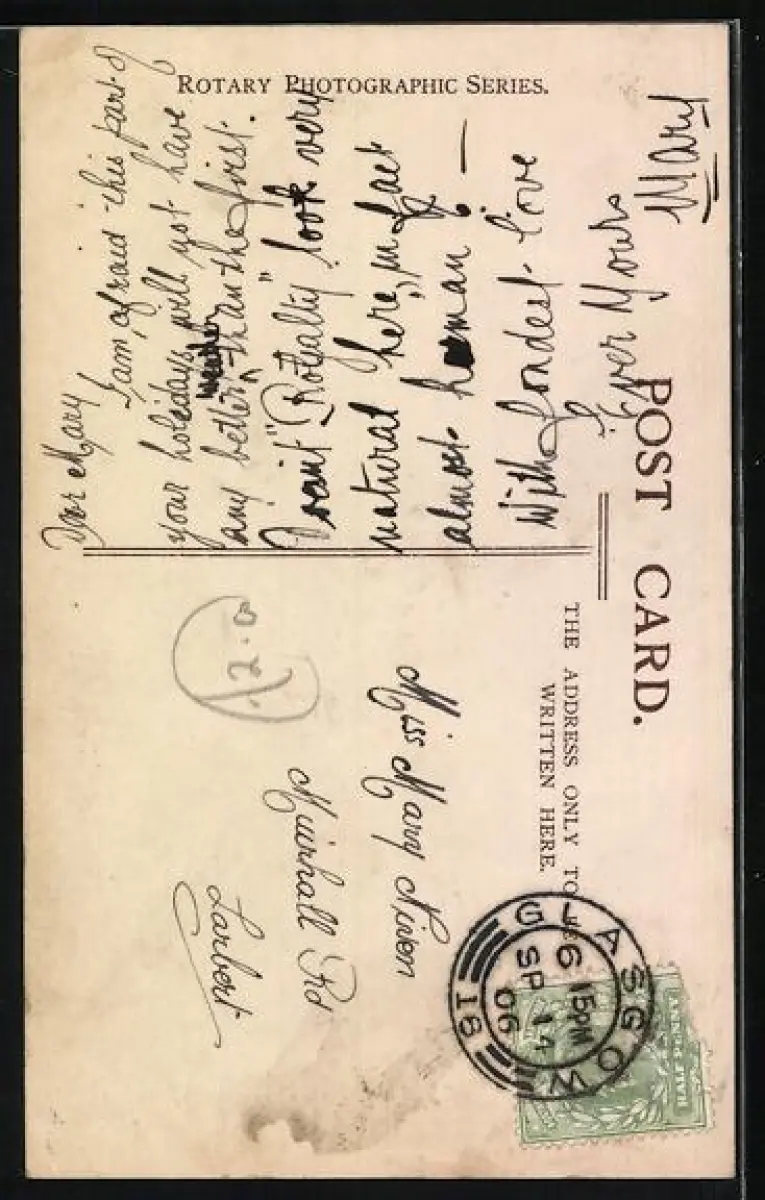 ROTARY PHOTOGRAPHIC SERIES.
POST CARD.
THE ADDRESS ONLY TO BE
WRITTEN HERE.
Dear Mary
I am afraid this part of
your holidays will not have
any better than the first.
"Royalty" look very
natural here, in fact
almost human! —
With fondest love
Ever Yours
Mary
12.0
Miss Mary Nixon
Muirhall Rd
Larbert
GLASGOW
6 15PM
SP 14
06
18
HALF PENNY